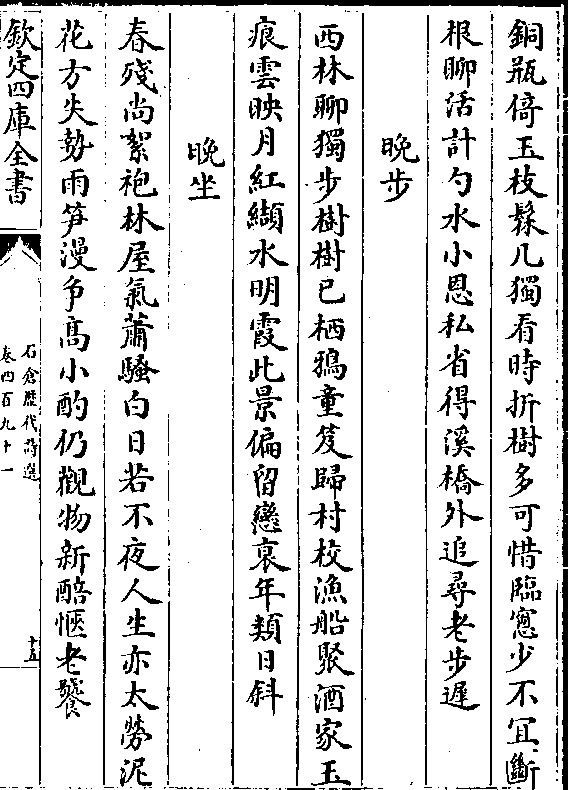 銅瓶倚玉枝髹几獨看時折樹多可惜臨窻少不宜斷
根聊活計勺水小恩私省得溪橋外追尋老步遲
晩步
西林聊獨步樹樹已栖鴉童笈歸村校漁船聚酒家玉
痕雲映月紅纈水明霞此景偏留戀衰年類日斜
晩坐
春殘尚絮袍林屋氣蕭騷白日若不夜人生亦太勞泥
花方失勢雨笋漫争高小酌仍觀物新醅愜老饕
欽定四庫全書
石倉歴代詩選
卷四百九十一
十五